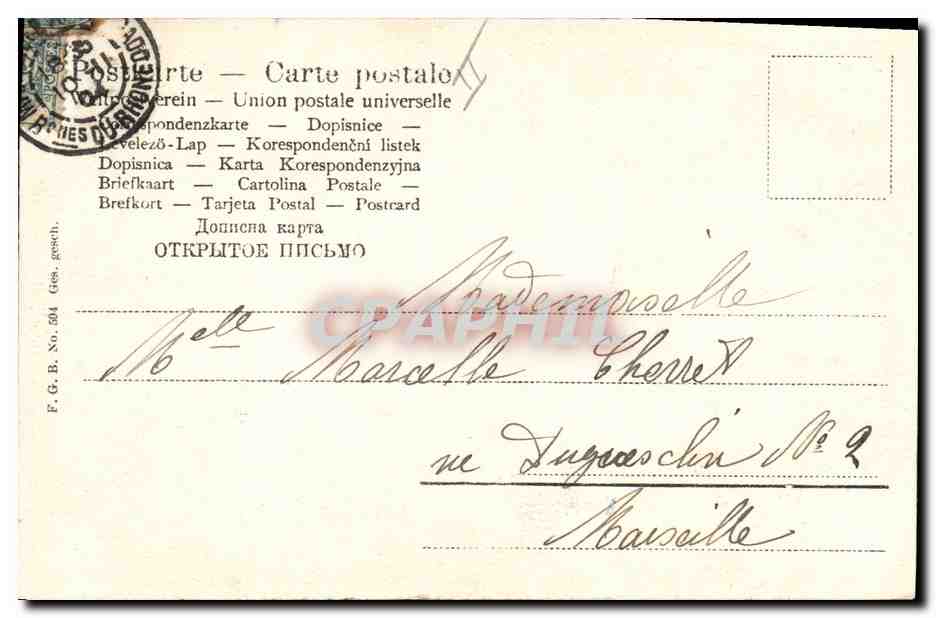 Postkarte — Carte postale
Weltpostverein — Union postale universelle
Korrespondenzkarte — Dopisnice —
Levelező-Lap — Korespondenční listek
Dopisnica — Karta Korespondenzyjna
Briefkaart — Cartolina Postale —
Brefkort — Tarjeta Postal — Postcard
Дописна карта
ОТКРЫТОЕ ПИСЬМО
F. G. B. No. 504 Ges. gesch.
Mademoiselle
Melle Marcelle Cherret
rue Duguesclin No 2
Marseille
CPAPHIL
BCHES DU RHONE